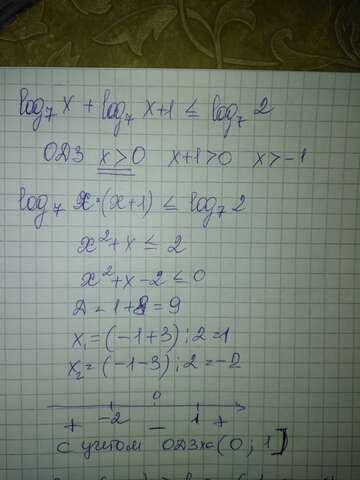 log₇ x + log₇ x+1 ≤ log₇ 2
ОДЗ x>0 x+1>0 x>-1
log₇ x·(x+1) ≤ log₇ 2
x²+x ≤ 2
x²+x-2 ≤ 0
Д=1+8=9
x₁=(-1+3):2=1
x₂=(-1-3):2=-2
0
+ -2 — 1 +
с учетом ОДЗ x∈(0; 1]